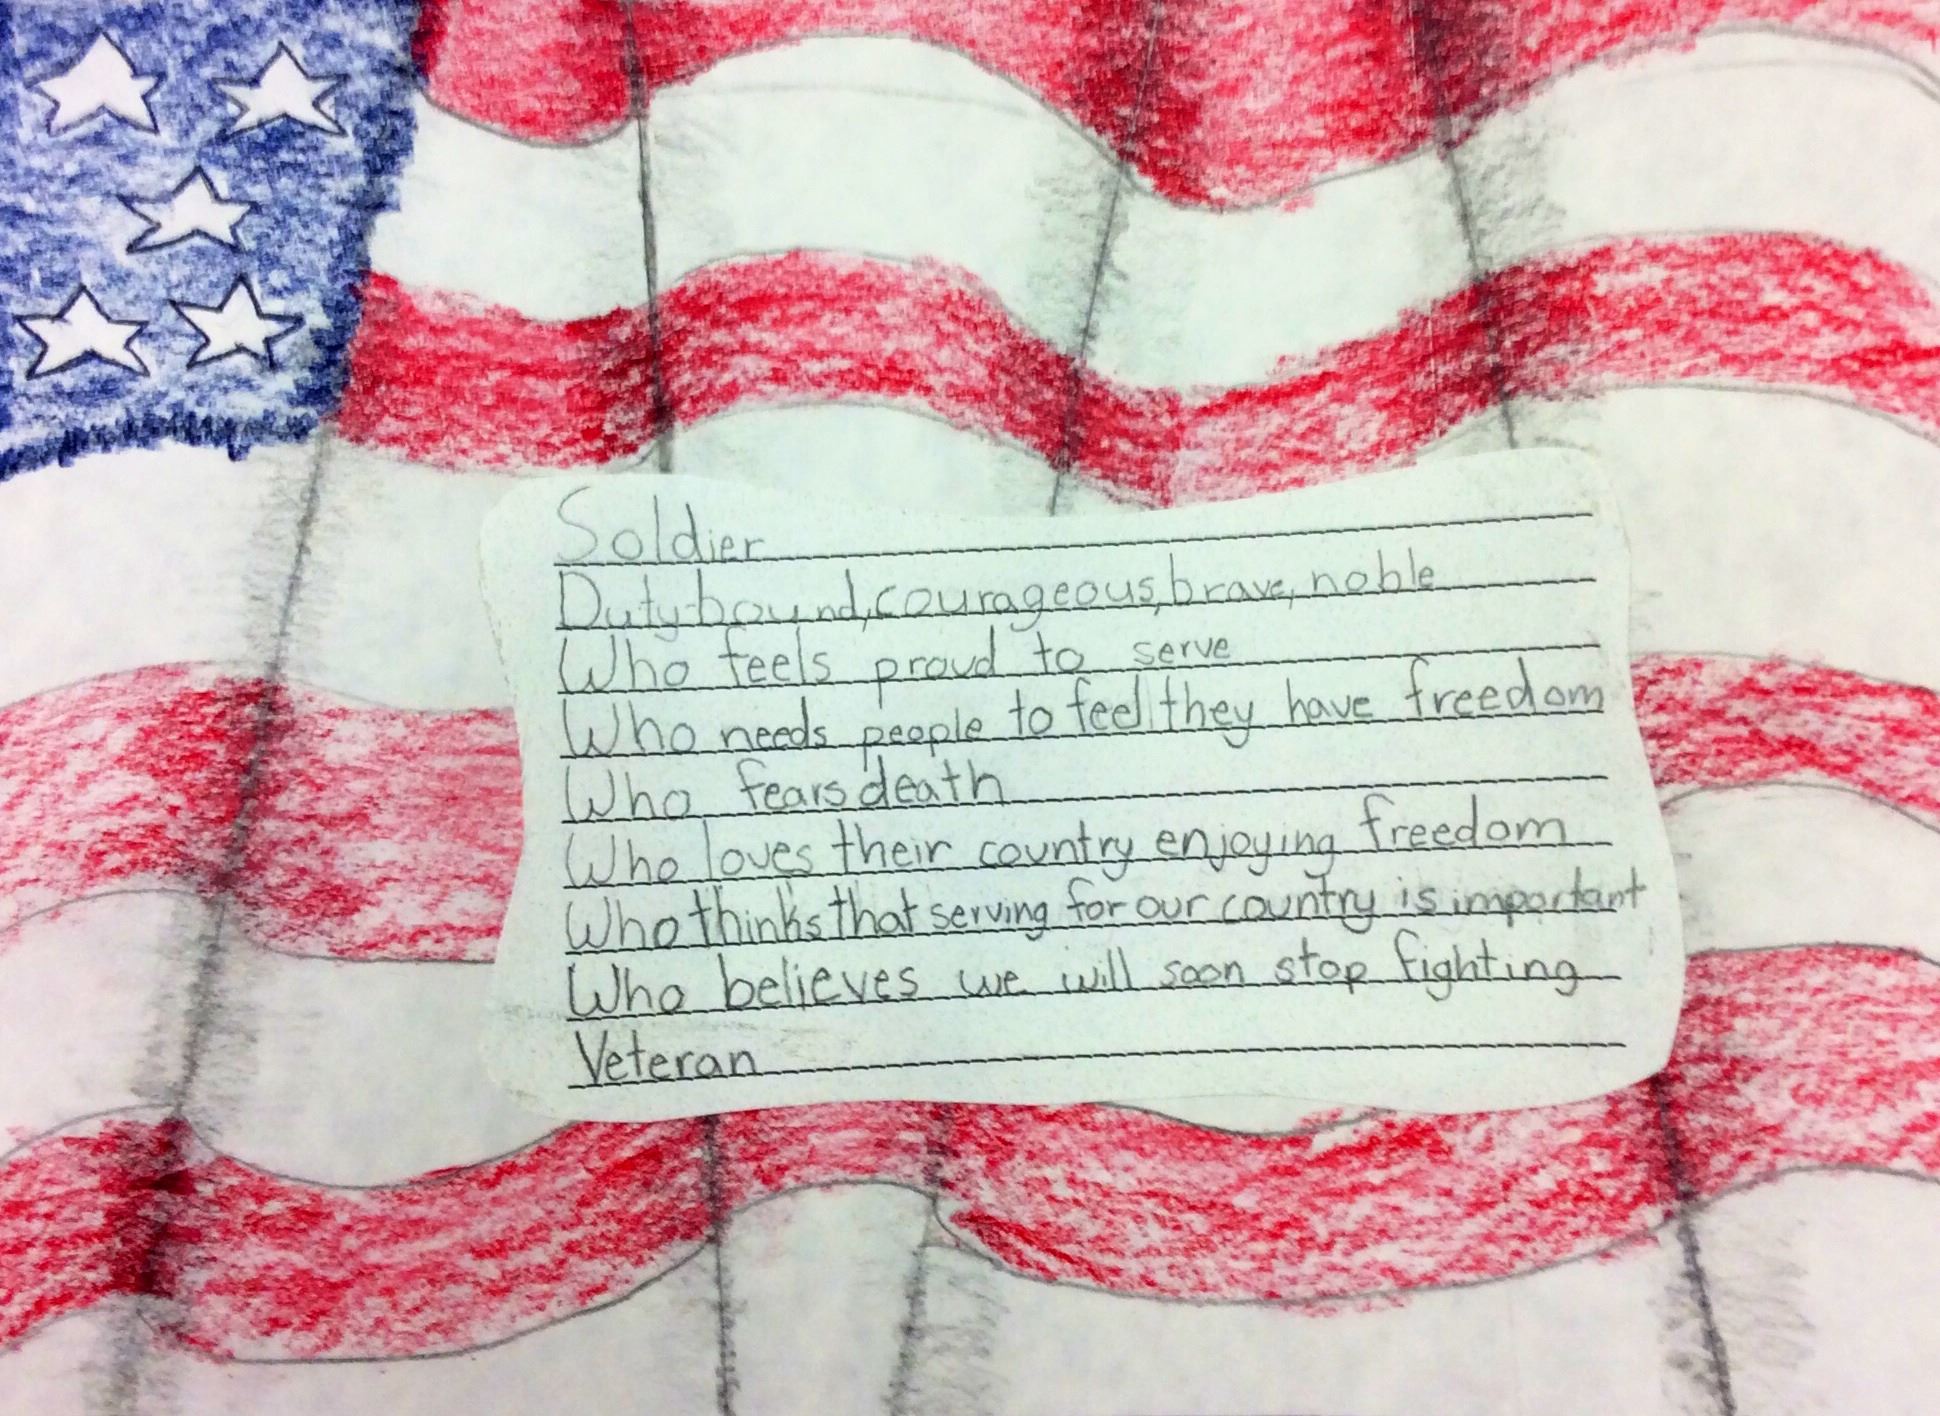 Soldier
Duty-bound, courageous, brave, noble
Who feels proud to serve
Who needs people to feel they have freedom
Who fears death
Who loves their country enjoying freedom
Who thinks that serving for our country is important
Who believes we will soon stop fighting
Veteran